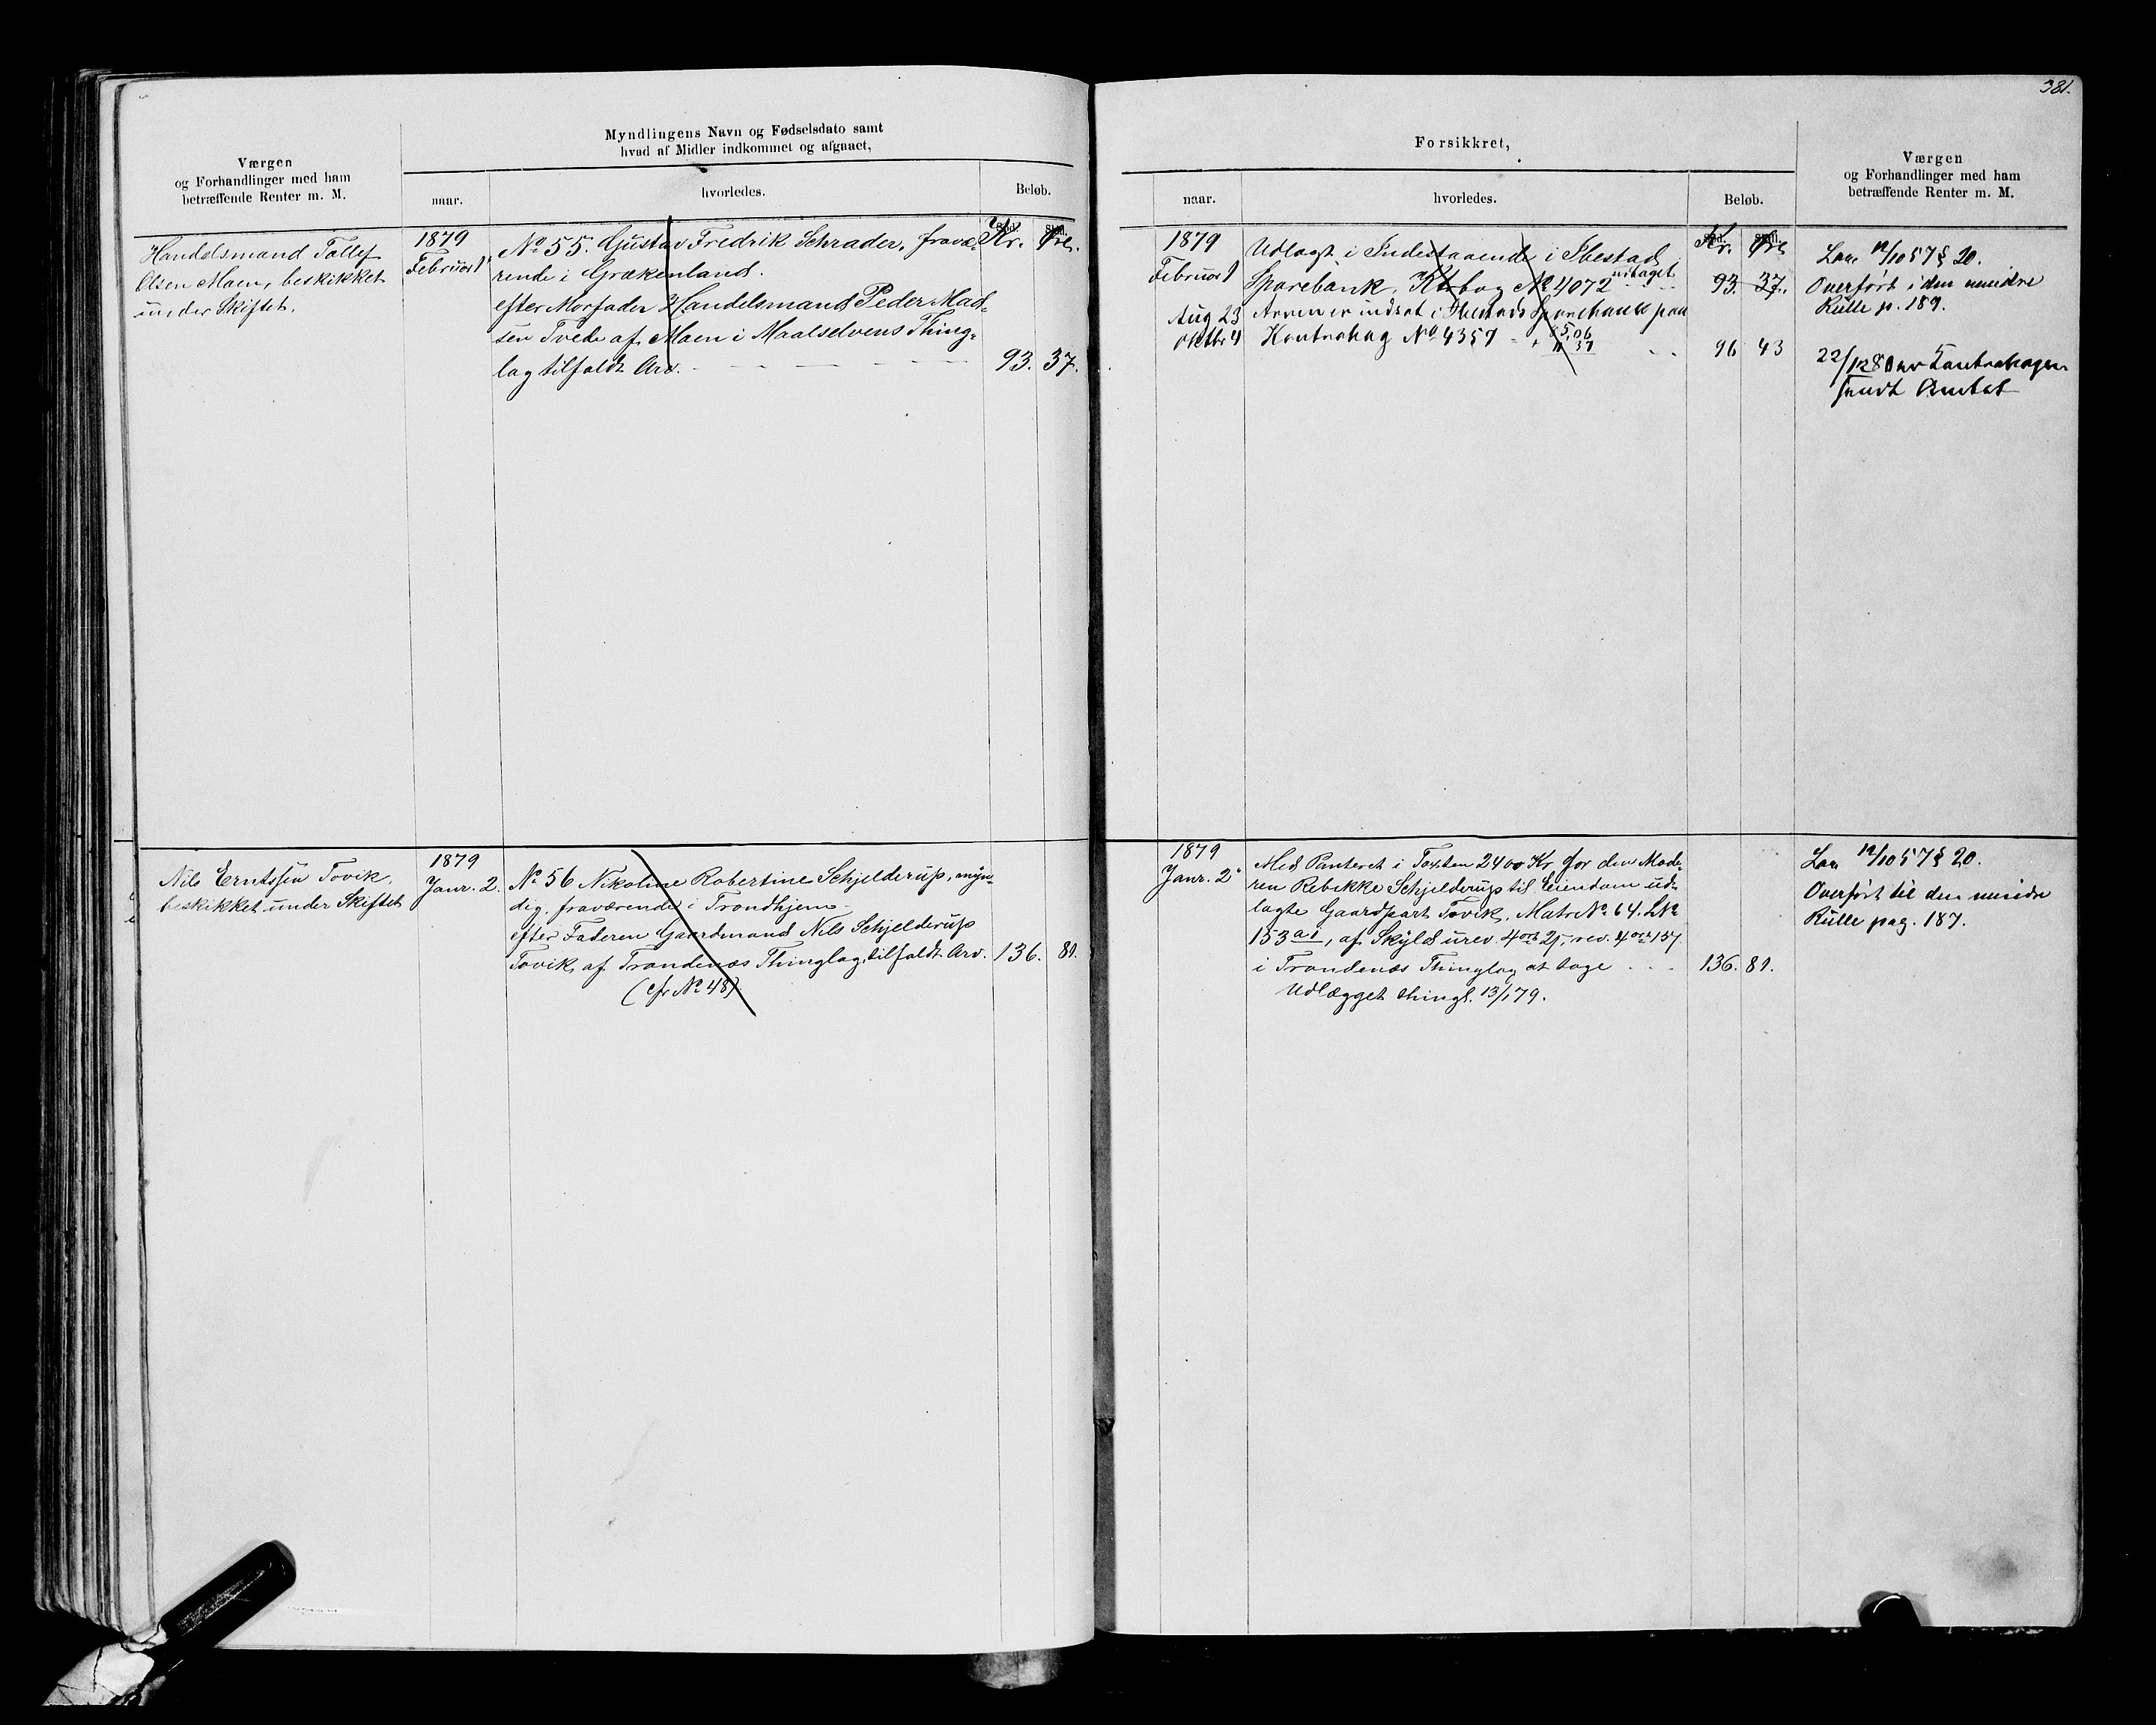 381.
Værgen
og Forhandlinger med ham
betræffende Renter m. M.
Myndlingens Navn og Fødselsdato samt
hvad af Midler indkommet og afgaaet,
naar.
hvorledes.
Beløb.
Handelsmand Tollef
Olsen Moen, beskikket
under Skiftet.
1879
Februar 1
Kr. Øre.
No 55. Gustav Fredrik Schrader, fravæ-
rende i Grækenland.
efter Morfader Handelsmand Peder Mad-
sen Tvede af Moen i Maalselvens Thing-
lag tilfaldt Arv. 93. 37.
Nils Erntssen Tovik,
beskikket under Skiftet
1879
Janr. 2.
No 56 Nikoline Robertine Schjelderup, myn-
dig, fraværende i Trondhjem
efter Faderen Gaardmand Nils Schjelderup
Tovik, af Trondenæs Thinglag, tilfaldt Arv. 136. 81.
(cfr No 48)
Forsikkret,
naar.
hvorledes.
Beløb.
Værgen
og Forhandlinger med ham
betræffende Renter m. M.
1879
Februar 1
Kr. Øre
Udlagt i Indestaaende i Ibestad
Sparebank, Ktrbog No 4072 udtaget 93. 37.
Aug 23 Arven er indsat i Ibestads Sparebank paa
Oktbr 4 Kontrabog No 4357 96 43
Lov 12/10 57 § 20.
Overført i den mindre
Rulle p. 189.
22/12 80 er Contrabogen
sendt Amtet
1879
Janr. 2
Med Panteret i Taxten 2400 Kr. for den Mode-
ren Rebekke Schjelderup til Eiendom ud-
lagte Gaardpart Tovik, Matr No 64. LNo
153 a1, af Skyld urev. 4 ort 21, rev. 4 ort 157
i Trondenæs Thinglag at tage 136. 81.
Udlægget thingl. 13/1 79.
Lov 12/10 57 § 20.
Overført til den mindre
Rulle pag. 187.